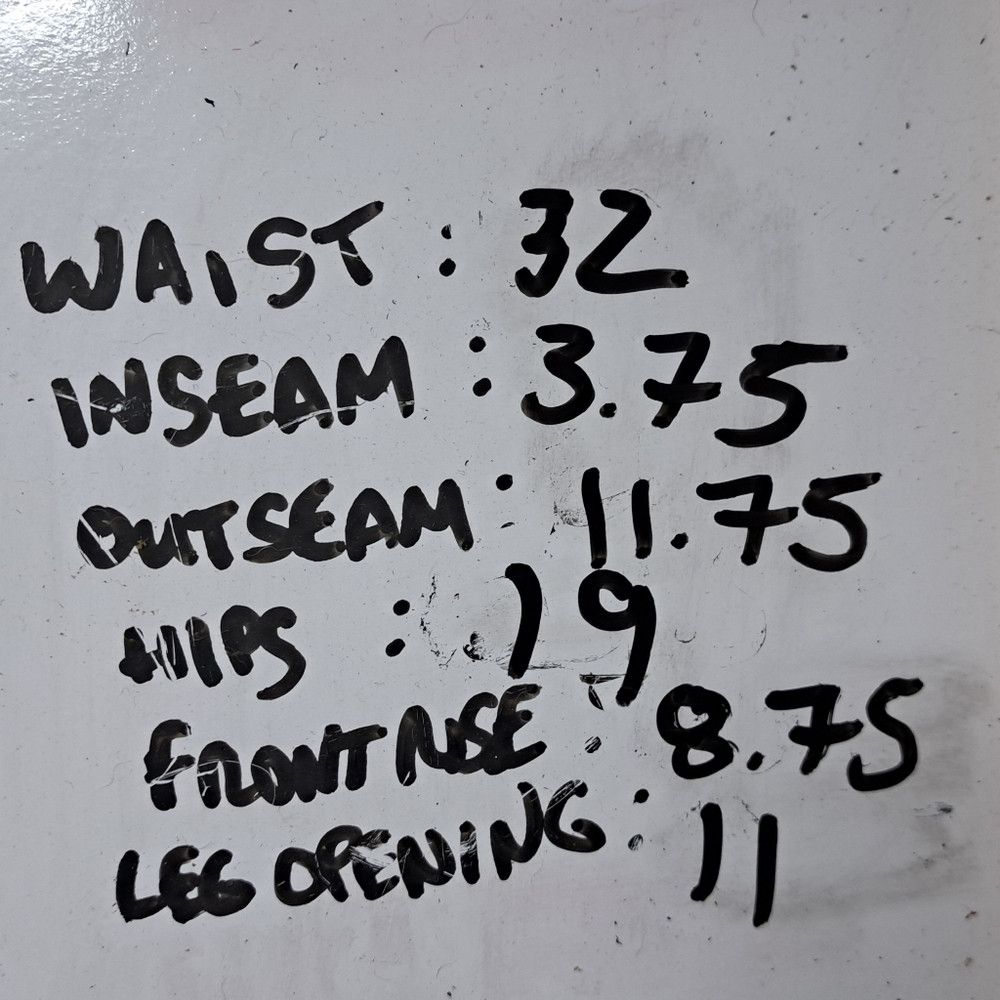 WAIST : 32
INSEAM : 3.75
OUTSEAM : 11.75
HIPS : 19
FRONT RISE : 8.75
LEG OPENING : 11